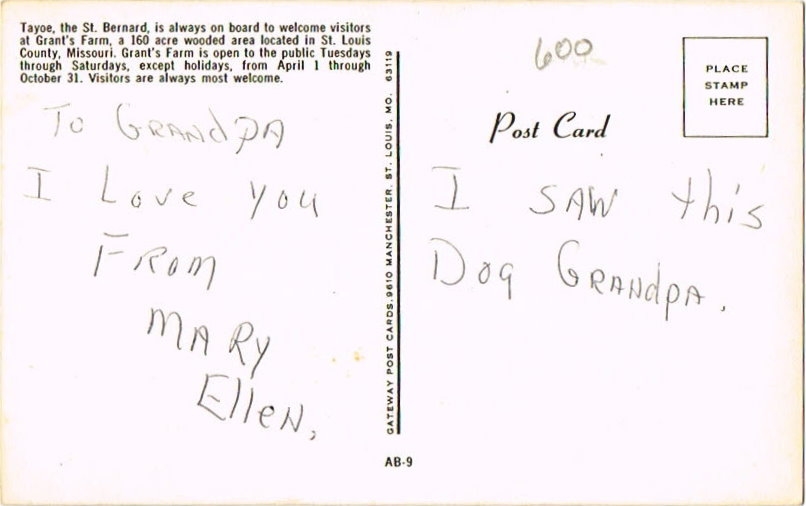 Tayoe, the St. Bernard, is always on board to welcome visitors
at Grant's Farm, a 160 acre wooded area located in St. Louis
County, Missouri. Grant's Farm is open to the public Tuesdays
through Saturdays, except holidays, from April 1 through
October 31. Visitors are always most welcome.
To GRANdPA
I Love you
FROM
MARY
EllEN,
GATEWAY POST CARDS, 9610 MANCHESTER, ST. LOUIS, MO. 63119
AB-9
600
PLACE
STAMP
HERE
Post Card
I SAW this
Dog GRANdPA.